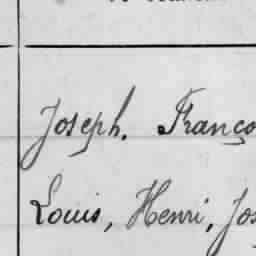 Joseph. Franço
Louis, Henri, Jos